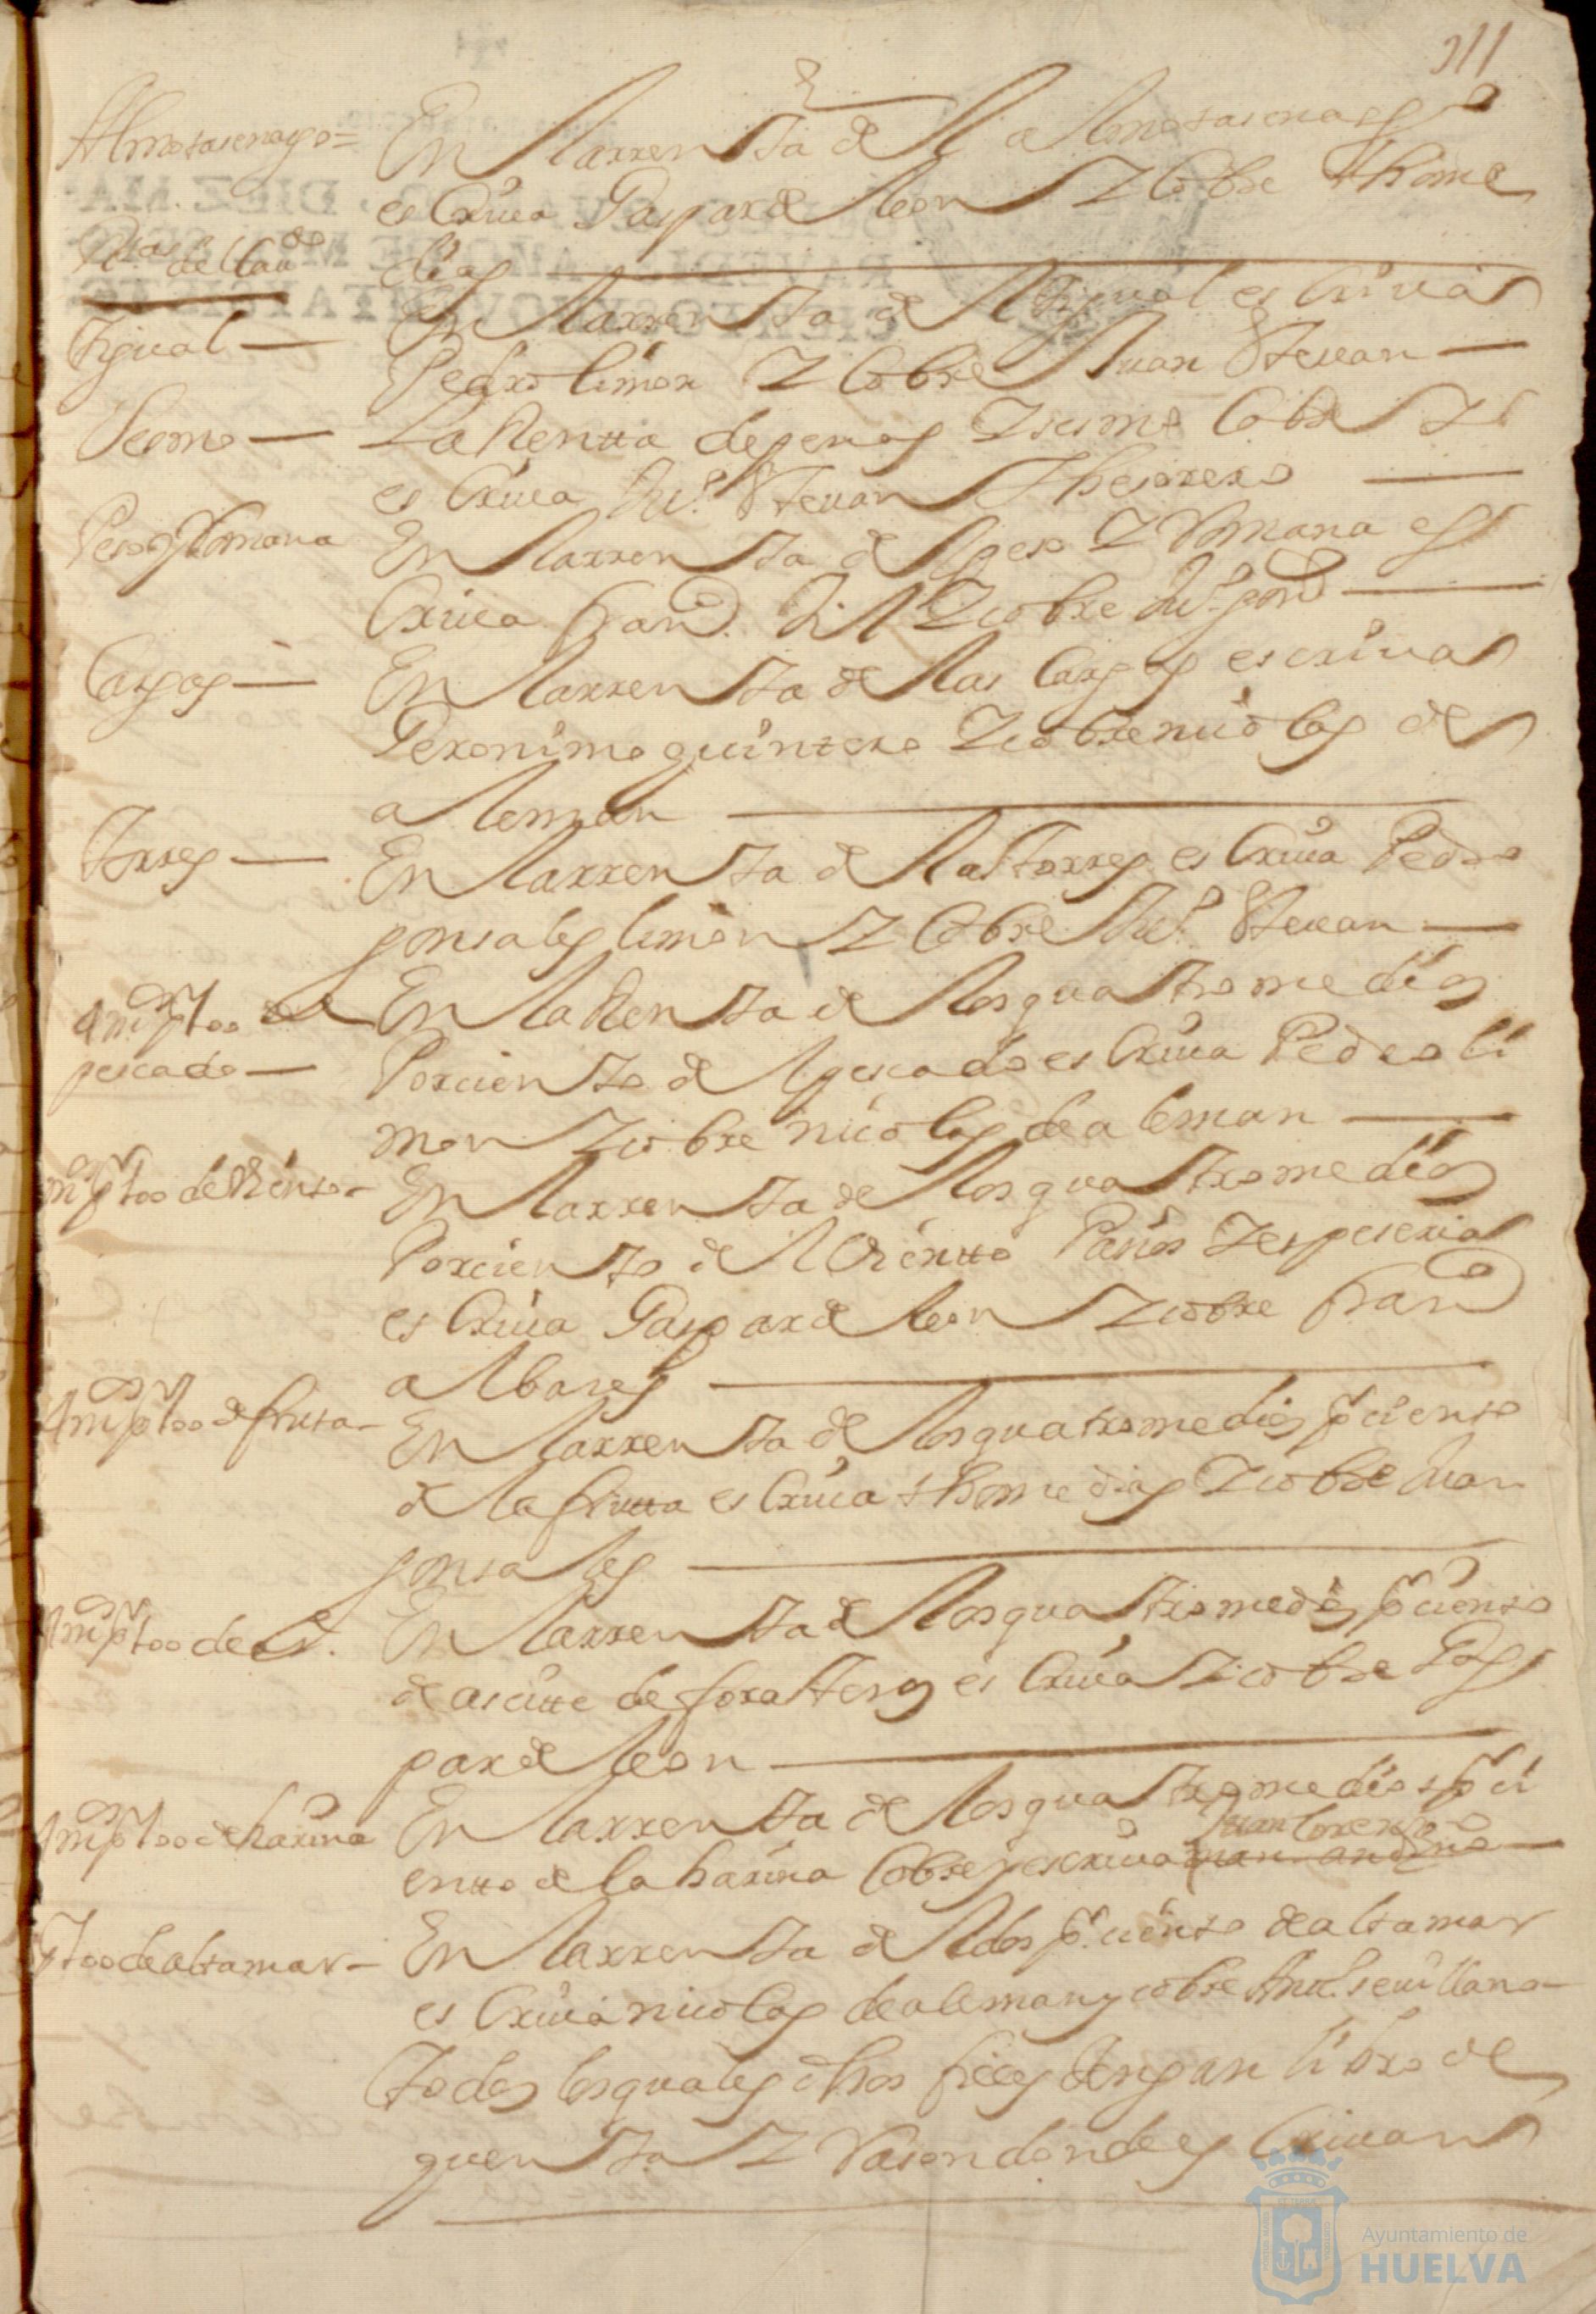 311
Almotasenasgo=
En la rrenta del almotasenasgo
escriua Gaspar de leon Y Cobre thome
Rtas del Caudo
dias
Figual
En la rrenta del figual escriua
Pedro limon Y Cobre Juan Steuan
Seomo
La Renta de penas Y seismo Cobre Y
escriua Juo Steuan Thesorero
Peso Y Romana
En la rrenta del peso Y Romana es
Criua franco Y cobre Juo
Cargas
En la rrenta de las Cargas escriua
Geronimo quintero Y cobre nicolas de
aleman
Torres
En la rrenta de las torres escriua Pedro
gonsales limon Y Cobre Juo Steuan
4 ms ptoo del
pescado
En la Renta de los quatro medios
Porciento del pescado escriua Pedro li
mon Y cobre nicolas de aleman
ms ptoo de Viento
En la rrenta de los quatro medios
Porciento del Viento Paños Y espeseria
escriua Gaspar de leon Y cobre franco
albares
4 ms ptoo de fruta
En la rrenta de los quatro medios pr ciento
de la frutta escriua thome dias Y cobre Juan
gonsales
4 ms ptoo de
En la rrenta de los quatro medios pr ciento
de aseitte de forasteros escriua Y cobre Gas
par de leon
4 ms ptoo de harina
En la rrenta de los quatro medios pr ci
Juan lorenso
entto de la harina Cobre y escriua
ptoo de altamar
En la rrenta del dos pr ciento de altamar
escriua nicolas de aleman y cobre Anto seuillano
Todos los quales dhos fieles tengan libro de
quenta Y Rason donde escriuan
Ayuntamiento de
HUELVA